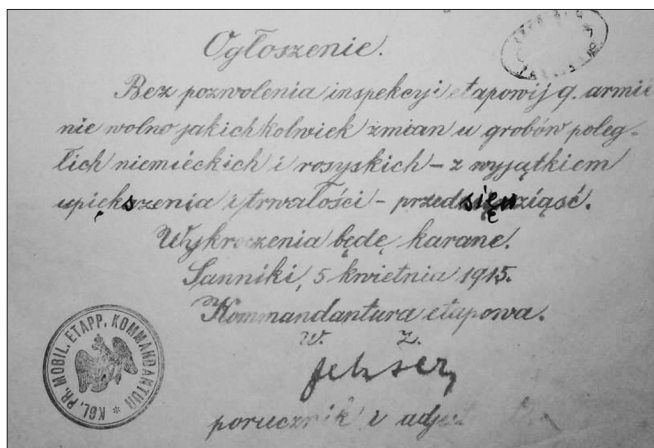 Ogłoszenie.
Bez pozwolenia inspekcyi etapowij 9. armii
nie wolno jakichkolwiek zmian u grobów poleg-
łich niemieckich i rosyskich – z wyjątkiem
upiększenia i trwałości – przedsięwziąść.
Wykroczenia będę karane.
Sanniki, 5 kwietnia 1915.
Kommandantura etapowa.
W. Z.
porucznik i adj
KGL. PR. MOBIL. ETAPP. KOMMANDANTUR *